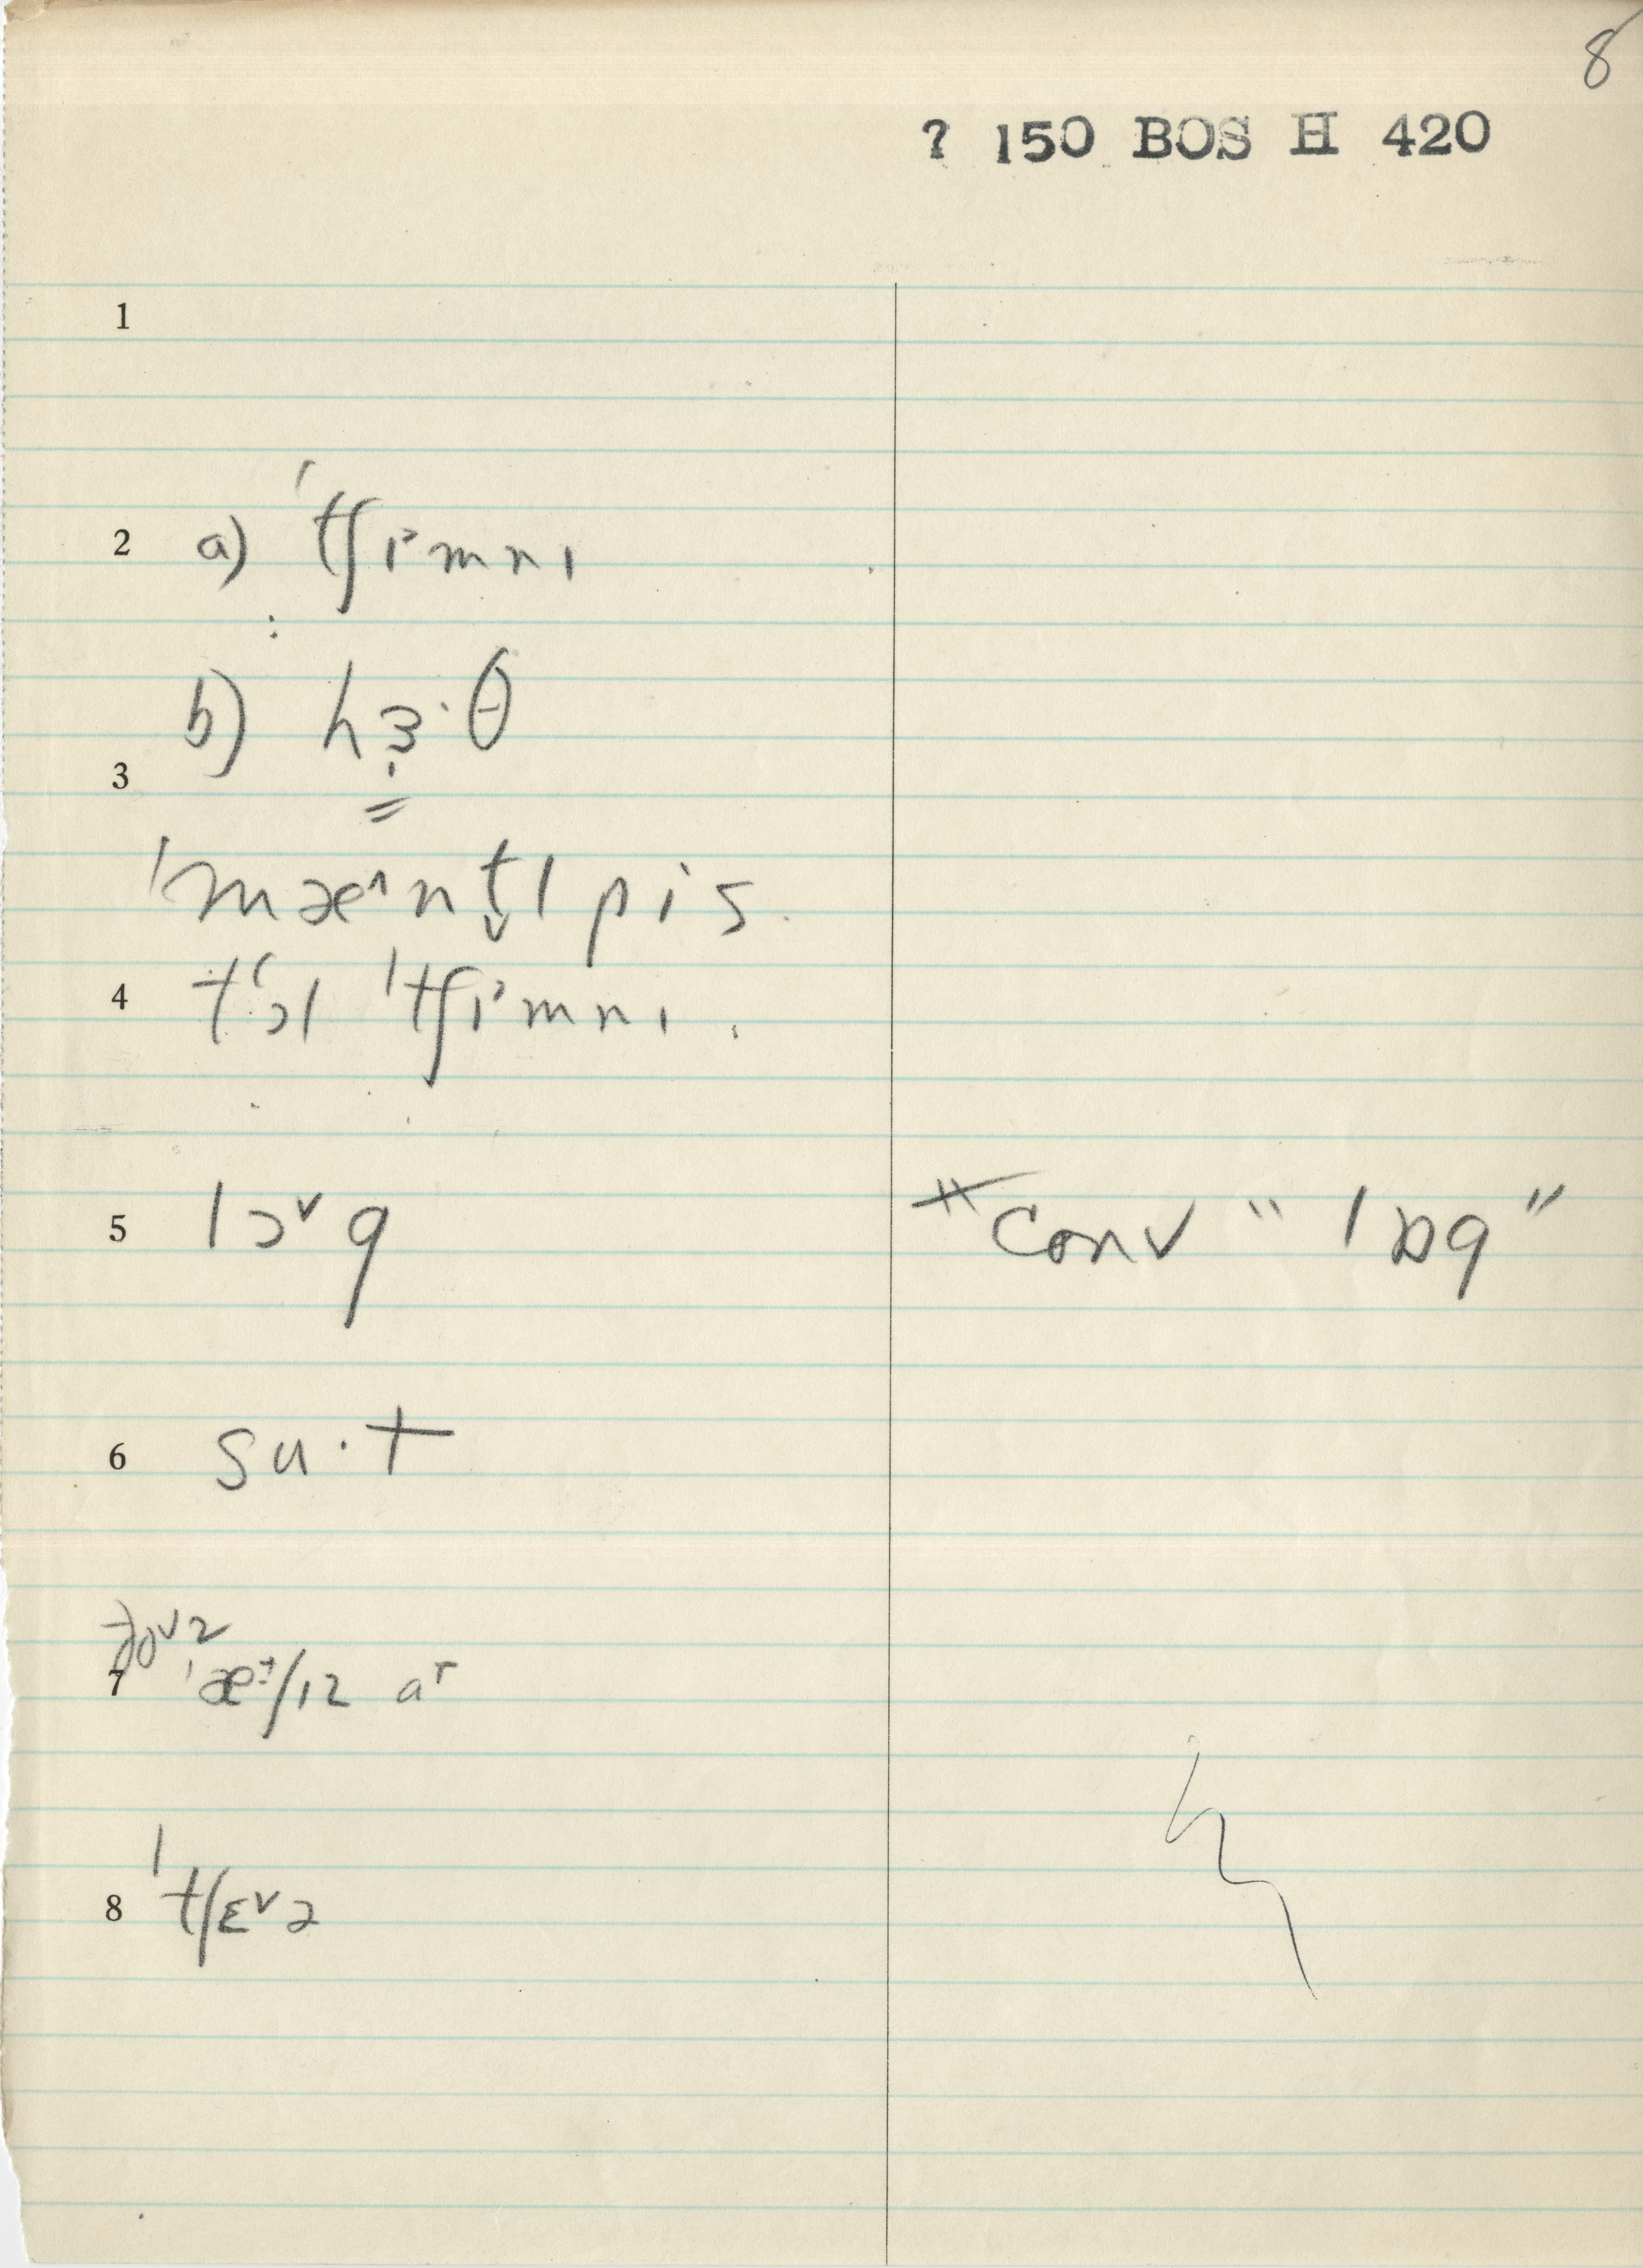 8
? 150 BOS H 420
1
2 a) ˈtʃɪ˃mnɪ
b) hɜ̣·θ
3
ˈmæ^nt̬l pis.
4 tʻɔl ˈtʃɪ˃mnɪ.
5 lɔ˅g
* conv "lɒg"
6 su·t
7 ˈæʃɪz a
8 ˈtʃɛ˅ə